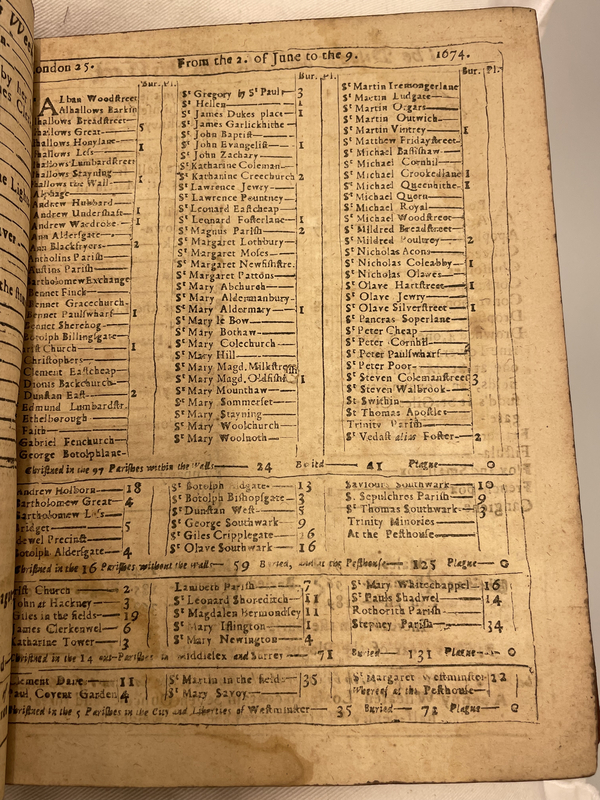 London 25. From the 2. of June to the 9. 1674.
Bur. Pl.
Alban Woodstreet
Alhallows Barkin
hallows Breadstreet
hallows Great 5
hallows Honylane
hallows Less 1
hallows Lumbardstreet
hallows Stayning
hallows the Wall 1
Alphage
Andrew Hubbard
Andrew Undershaft 1
Andrew Wardrobe 1
Ann Aldersgate
Ann Blackfryers 2
Antholins Parish
Austins Parish
Bartholomew Exchange
Bennet Finck
Bennet Gracechurch
Bennet Paulswharf 1
Bennet Sherehog
Botolph Billingsgate
Christ Church 1
Christophers
Clement Eastcheap
Dionis Backchurch
Dunstan East 2
Edmund Lumbardstr.
Ethelborough
Faith
Gabriel Fenchurch
George Botolphlane
Bur. Pl.
St Gregory by St Paul 3
St Hellen 1
St James Dukes place 1
St James Garlickhithe
St John Baptist
St John Evangelist 1
St John Zachary
St Katharine Coleman
St Katharine Creechurch 2
St Lawrence Jewry
St Lawrence Pountney
St Leonard Eastcheap
St Leonard Fosterlane 1
St Magnus Parish 2
St Margaret Lothbury
St Margaret Moses
St Margaret Newfishstre.
St Margaret Pattons
St Mary Abchurch
St Mary Aldermanbury
St Mary Aldermary 1
St Mary le Bow
St Mary Bothaw
St Mary Colechurch
St Mary Hill
St Mary Magd. Milkstreet
St Mary Magd. Oldfishst 1
St Mary Mounthaw
St Mary Sommerset
St Mary Stayning
St Mary Woolchurch
St Mary Woolnoth
Bur. Pl.
St Martin Iremongerlane
St Martin Ludgate
St Martin Orgars
St Martin Outwich
St Martin Vintrey 1
St Matthew Fridaystreet
St Michael Bassishaw
St Michael Cornhil
St Michael Crookedlane 1
St Michael Queenhithe 1
St Michael Quern
St Michael Royal
St Michael Woodstreet
St Mildred Breadstreet
St Mildred Poultrey 2
St Nicholas Acons
St Nicholas Coleabby 1
St Nicholas Olaves
St Olave Hartstreet 1
St Olave Jewry
St Olave Silverstreet 1
St Pancras Soperlane
St Peter Cheap
St Peter Cornhil
St Peter Paulswharf
St Peter Poor
St Steven Colemanstreet 3
St Steven Walbrook
St Swithin
St Thomas Apostles
Trinity Parish
St Vedast alias Foster 2
Christned in the 97 Parishes within the Walls 24 Buried 41 Plague 0
Andrew Holborn 18
Bartholomew Great 4
Bartholomew Less
Bridget 5
Bridewel Precinct
Botolph Aldersgate 4
St Botolph Aldgate 13
St Botolph Bishopsgate 3
St Dunstan West 5
St George Southwark 9
St Giles Cripplegate 26
St Olave Southwark 16
Saviours Southwark 10
S. Sepulchres Parish 9
St Thomas Southwark 3
Trinity Minories
At the Pesthouse
Christned in the 16 Parishes without the Walls 59 Buried, and at the Pesthouse 125 Plague 0
Christ Church 2
John at Hackney 3
Giles in the fields 19
James Clerkenwel 6
Katharine Tower 3
Lambeth Parish 7
St Leonard Shoreditch 11
St Magdalen Bermondsey 11
St Mary Islington 1
St Mary Newington 4
St Mary Whitechappel 16
St Pauls Shadwel 14
Rothorith Parish
Stepney Parish 34
Christned in the 14 out-Parishes in Middlesex and Surrey 71 Buried 131 Plague 0
Clement Dane 11
Paul Covent Garden 4
St Martin in the fields 35
St Mary Savoy
St Margaret Westminster 22
Whereof at the Pesthouse
Christned in the 5 Parishes in the City and Liberties of Westminster 35 Buried 72 Plague 0